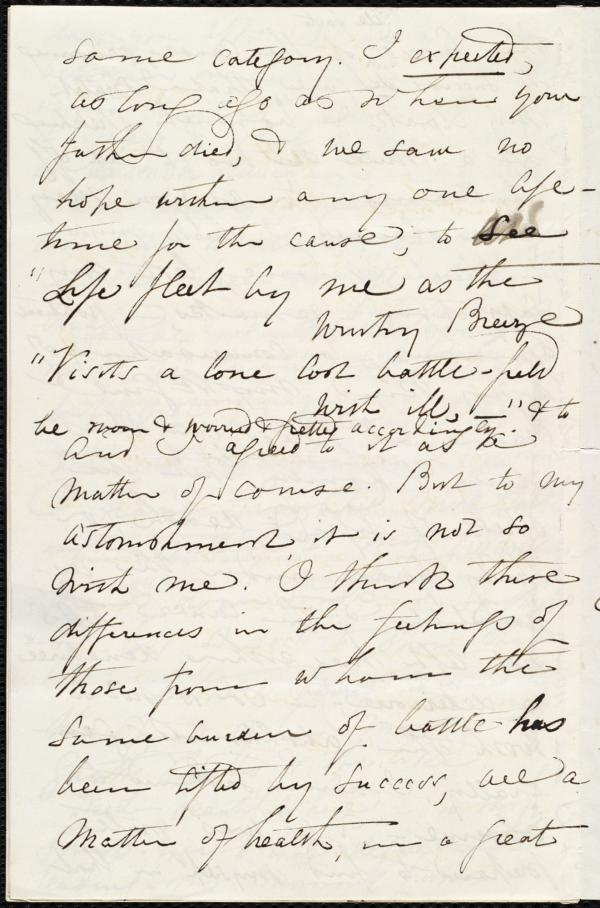 same category. I expected,
as long ago as when your
father died, & we saw no
hope within any one life-
time for the cause, to see
"Life fleet by me as the
wintry Breeze
"Visits a lone lost battle-field
with ill, " & to
be worn & worried & fretted accordingly.
And I agreed to it as a
matter of course. But to my
astonishment, it is not so
with me. I think these
differences in the feelings of
those from whom the
same burden of battle has
been lifted by success, are a
matter of health, in a great